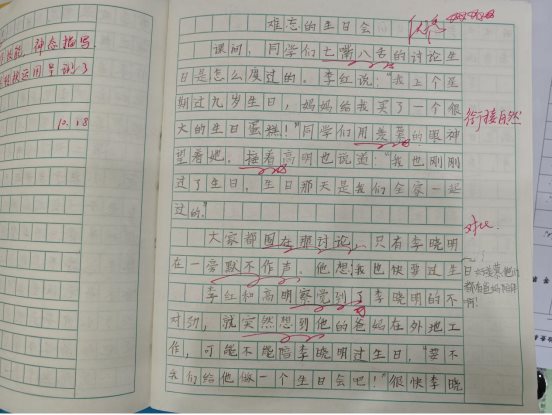 神态描写
运用

10.18
难忘的生日会
课间，同学们七嘴八舌的讨论生
日是怎么度过的。李红说："我上个星
期过九岁生日，妈妈给我买了一个很
大的生日蛋糕！"同学们用羡慕的眼神
望着她。接着高明也说道："我也刚刚
过了生日，生日那天是我们全家一起
过的。"
大家都围在那讨论，只有李晓明
在一旁默不作声。他想：我也快要过生
日
李红和高明察觉到了李晓明的不
对劲，就突然想到他的爸妈在外地工
作，可能不能陪李晓明过生日，"要不
我们给他做一个生日会吧！"很快李晓
衔接自然
对比